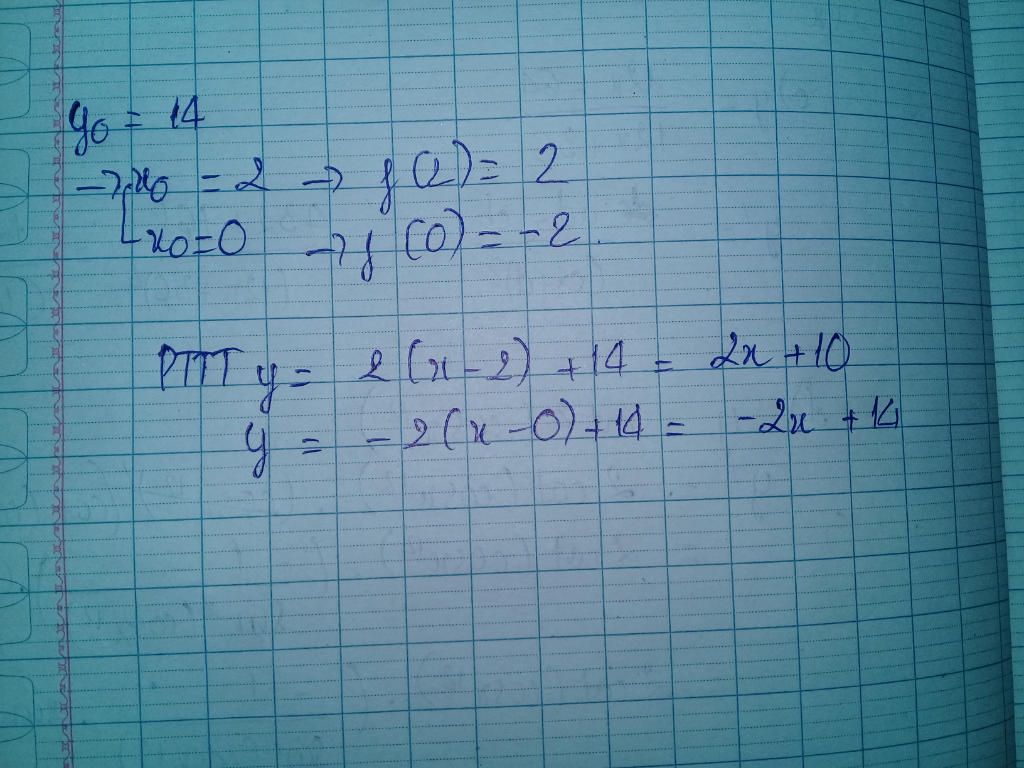 y₀ = 14
→ [x₀ = 2 → f(2) = 2
[x₀ = 0 → f(0) = -2.
PTTT y = 2(x - 2) + 14 = 2x + 10
y = -2(x - 0) + 14 = -2x + 14